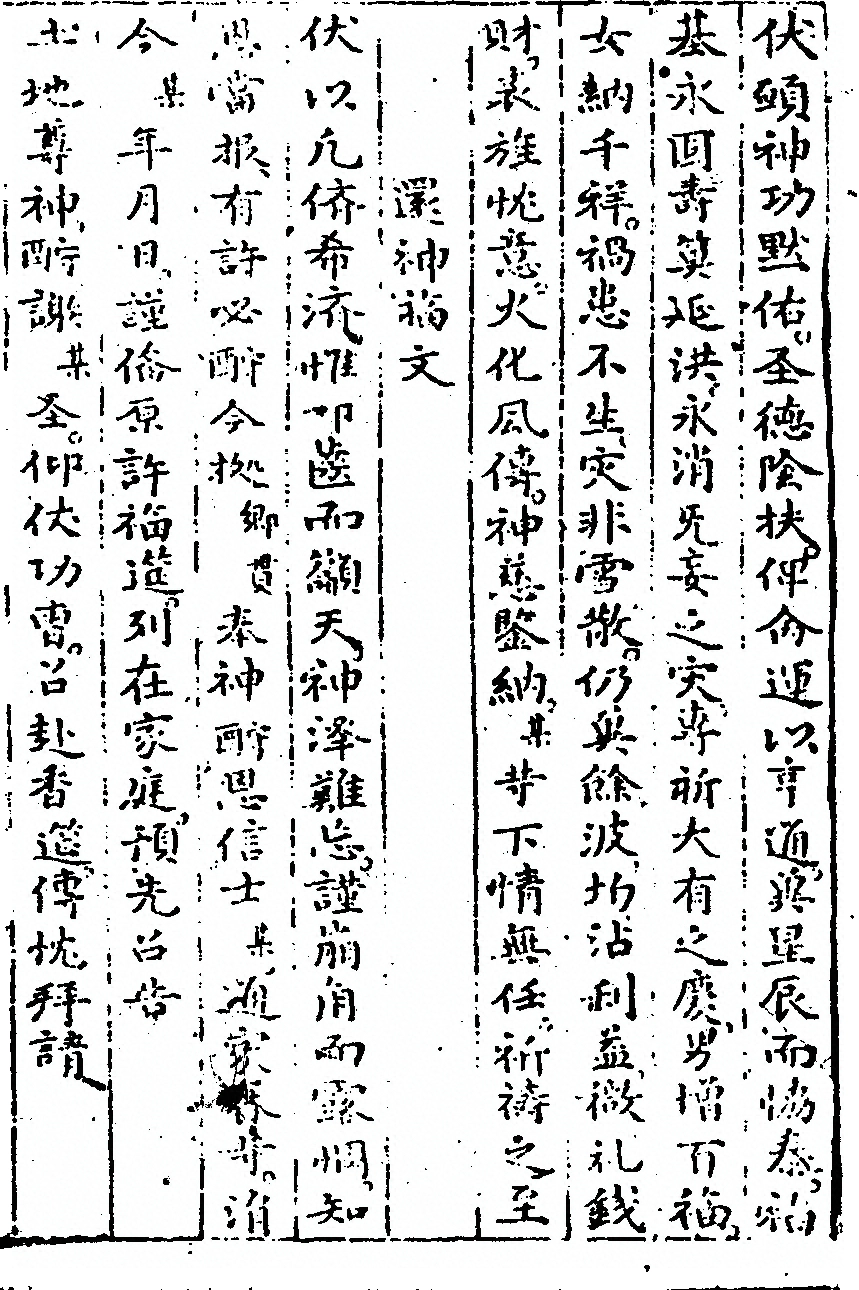 伏願神功默佑圣德陰扶俾命運以亨通與星辰而協泰福
基永固壽算延洪永消旡妄之灾專祈大有之慶男增百福
女納千祥禍患不生灾非雪散仍與餘波均沾利益微礼錢
財表旌忱意火化風傳神慈鑒納某等下情無任祈禱之至
還神福文
伏以凡儕希流惟叩齒而籲天神澤難忘謹崩角而露悃知
恩當报有許必酧今拠鄉貫奉神酧恩信士某通家眷等涓
今某年月日謹備原許福筵列在家庭預先召告
土地尊神酧謝某圣仰伏功曹召赴香筵傳忱拜請